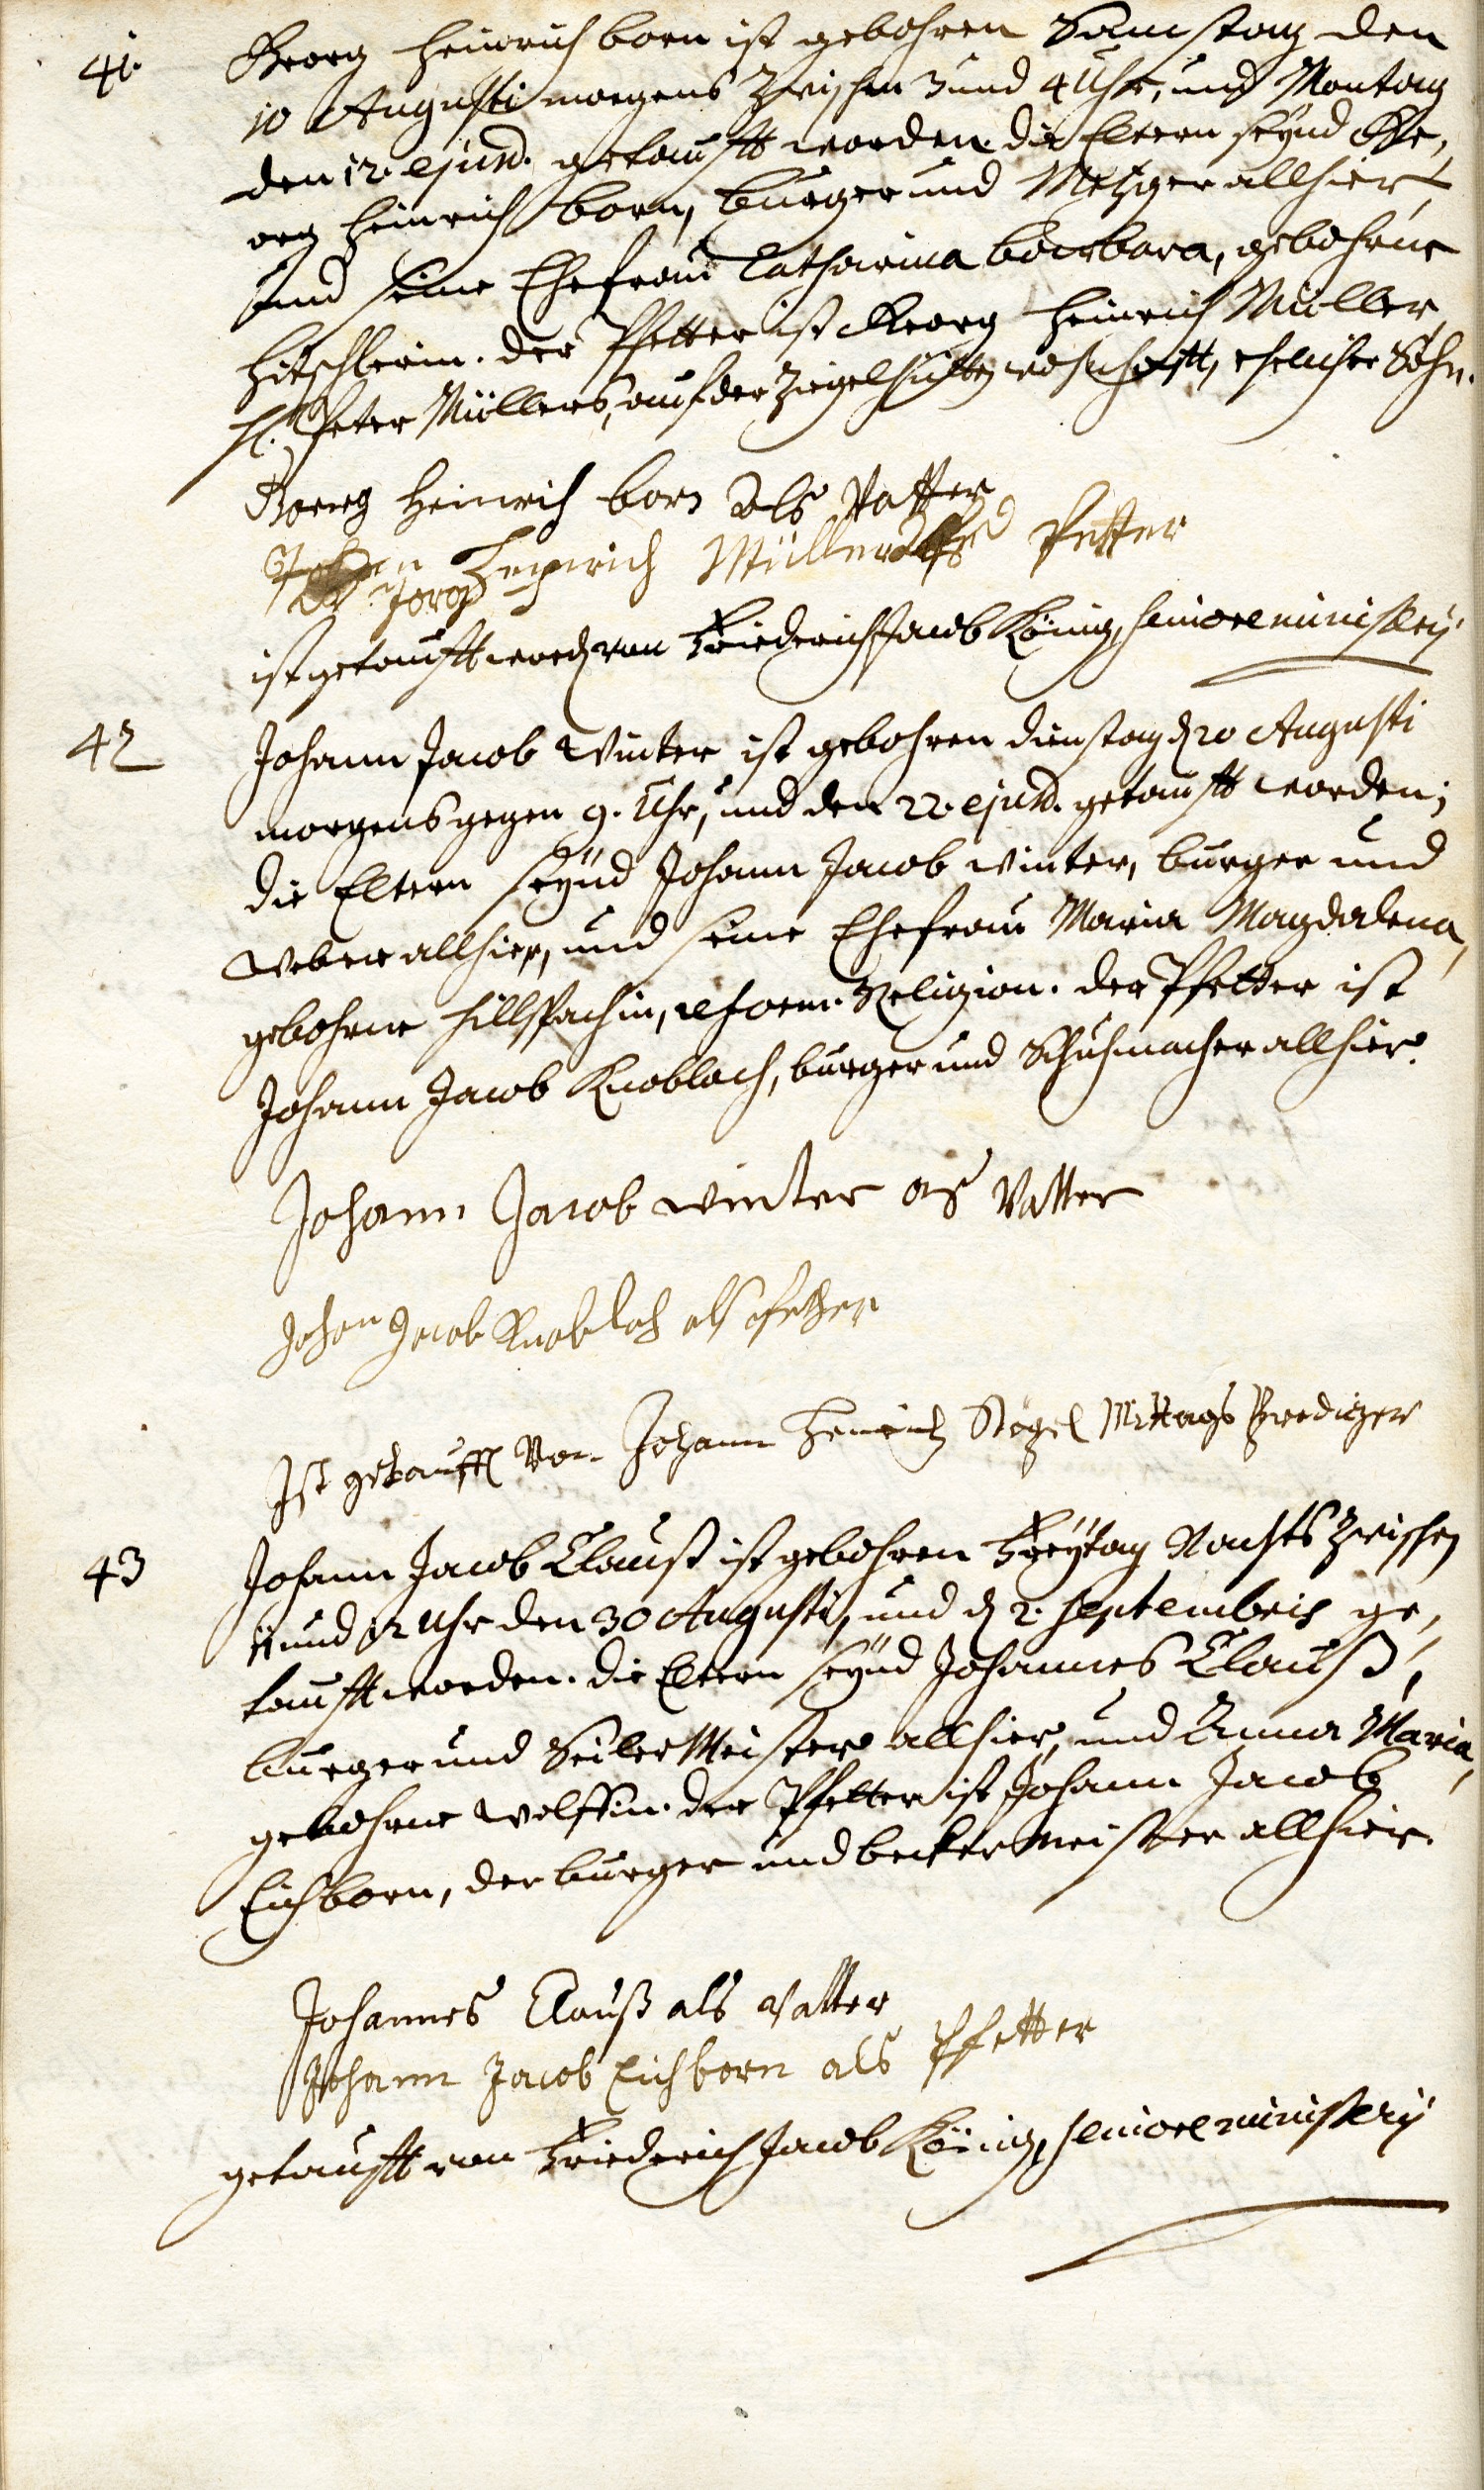 41. Georg Heinrich Born ist gebohren Samstag den
10 Augusti morgens zwischen 3 und 4 Uhr, und Montag
den 12. ejusd. getaufft worden. die Eltern seynd Ge,
org Heinrich Born, burger und Metzger allhier,
und seine Ehefrau Catharina Barbara, gebohrne
Hitschlerin. der Pfetter ist Georg Heinrich Müller,
H. Peter Müllers, auf der Ziegelhütten wohnhafft, ehelicher Sohn.
Georg Heinrich born Als Vatter
Johan Jorg Heinrich Müller als Petter
ist getaufft word. von Friederich Jacob König, seniore ministerij
42 Johann Jacob Winter ist gebohren dienstag d. 20 Augusti
morgens gegen 9. Uhr, und den 22. ejusd. getaufft worden;
die Eltern seynd Johann Jacob Winter, burger und
Weber allhier, und seine Ehefrau Maria Magdalena,
gebohrne Hillspachin, reform. Religion. der Pfetter ist
Johann Jacob Knobloch, burger und Schuhmacher allhier.
Johann Jacob winter als Vatter
Johan Jacob Knobloch als pfetter
Ist getaufft Von Johann Henrich Mittags Prediger
43 Johann Jacob Clauß ist gebohren Freytag Nachts zwischen
11 und 12 Uhr den 30 Augusti, und d. 2. Septembris ge,
taufft worden. die Eltern seynd Johannes Clauß,
burger und Seiler Meister allhier, und Anna Maria,
gebohrne Wolffin. der Pfetter ist Johann Jacob
Eichborn, der burger und becker Meister allhier.
Johannes Clauß als Vatter
Johann Jacob Eichborn als Pfetter
getaufft von Friederich Jacob König, seniore ministerij